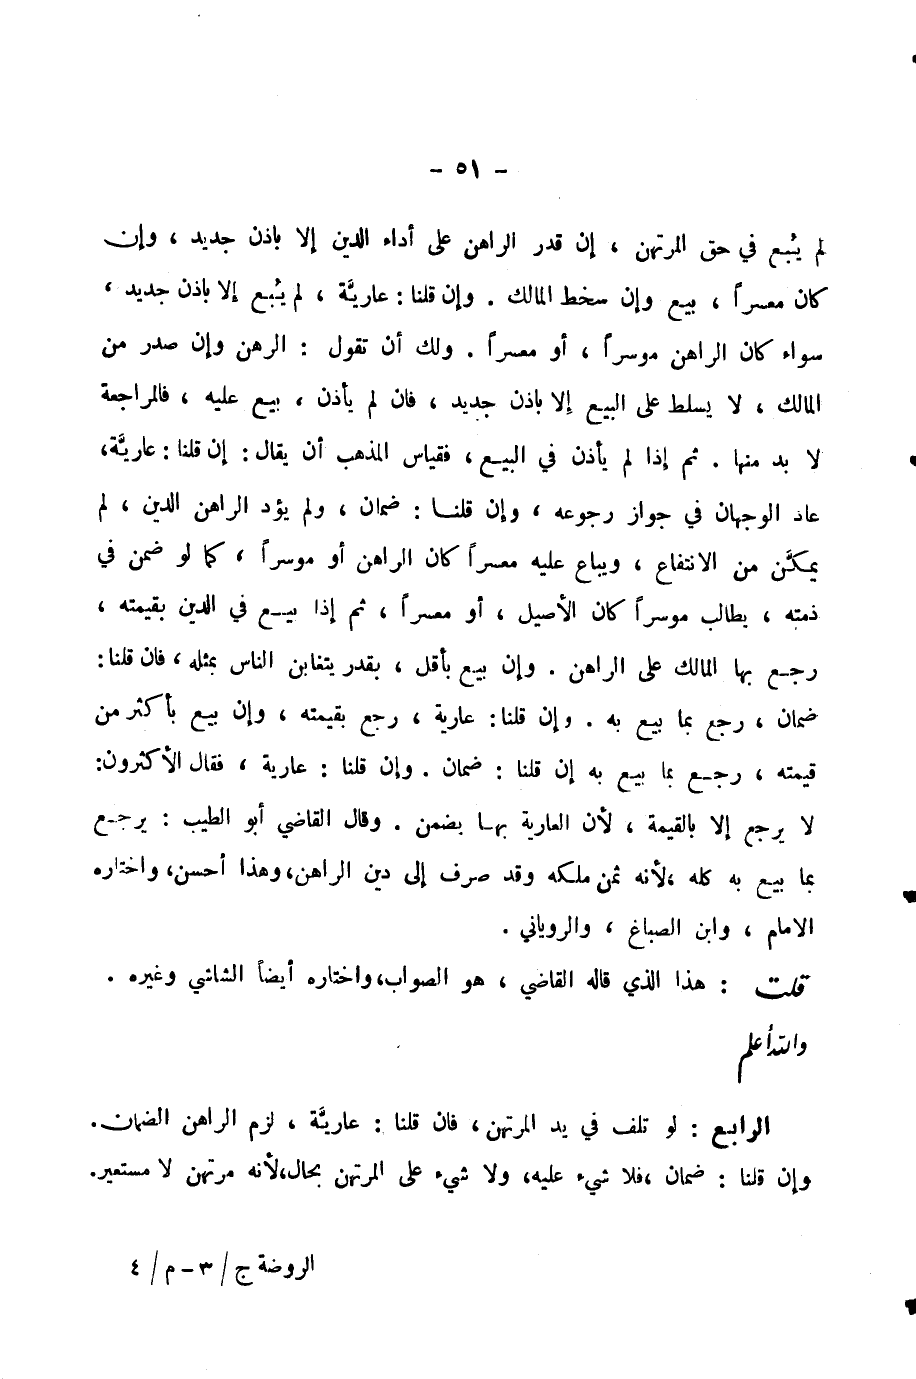 - ٥١ -
لم يُبع في حق المرتهن ، إن قدر الراهن على أداء الدين إلا باذن جديد ، وإن
كان معسراً ، بيع وإن سخط المالك . وإن قلنا : عاريَّة ، لم يُبع إلا باذن جديد ،
سواء كان الراهن موسراً ، أو معسراً . ولك أن تقول : الرهن وإن صدر من
المالك ، لا يسلط على البيع إلا باذن جديد ، فان لم يأذن ، بيع عليه ، فالمراجعة
لا بد منها . ثم إذا لم يأذن في البيع ، فقياس المذهب أن يقال : إن قلنا : عاريَّة،
عاد الوجهان في جواز رجوعه ، وإن قلنا : ضمان ، ولم يؤد الراهن الدين ، لم
يمكَّن من الانتفاع ، ويباع عليه معسراً كان الراهن أو موسراً ، كما لو ضمن في
ذمته ، يطالب موسراً كان الأصيل ، أو معسراً ، ثم إذا بيع في الدين بقيمته ،
رجع بها المالك على الراهن . وإن بيع بأقل ، بقدر يتغابن الناس بمثله ، فان قلنا:
ضمان ، رجع بما بيع به . وإن قلنا: عارية ، رجع بقيمته ، وإن بيع بأكثر من
قيمته ، رجع بما بيع به إن قلنا : ضمان . وإن قلنا : عارية ، فقال الأكثرون:
لا يرجع إلا بالقيمة ، لأن العارية بها يضمن . وقال القاضي أبو الطيب : يرجع
بما بيع به كله ،لأنه ثمن ملكه وقد صرف إلى دين الراهن،وهذا أحسن،واختاره
الامام ، وابن الصباغ ، والروياني .
قلت : هذا الذي قاله القاضي ، هو الصواب،واختاره أيضاً الشاشي وغيره .
والله أعلم
الرابع : لو تلف في يد المرتهن، فان قلنا : عاريَّة ، لزم الراهن الضمان.
وإن قلنا : ضمان ،فلا شيء عليه، ولا شيء على المرتهن بحال،لأنه مرتهن لا مستعير.
الروضة ج/٣ - م/٤